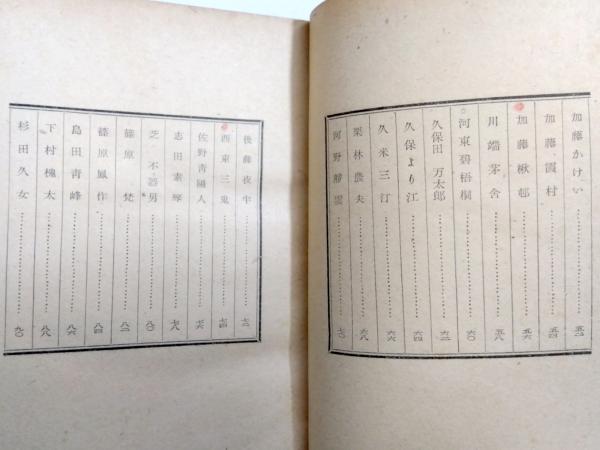 加藤かけい……五二
加藤霞村……五四
加藤楸邨……五六
川端茅舎……五八
河東碧梧桐……六〇
久保田万太郎……六二
久保より江……六四
久米三汀……六六
栗林農夫……六八
河野静雲……七〇
後藤夜半……七二
西東三鬼……七四
佐野青陽人……七六
志田素琴……七八
芝不器男……八〇
篠原梵……八二
篠原鳳作……八四
島田青峰……八六
下村槐太……八八
杉田久女……九〇